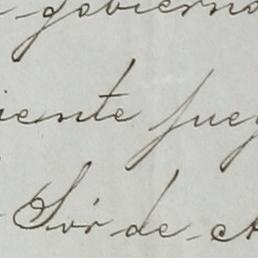 gobierno
iente jue
Sor de